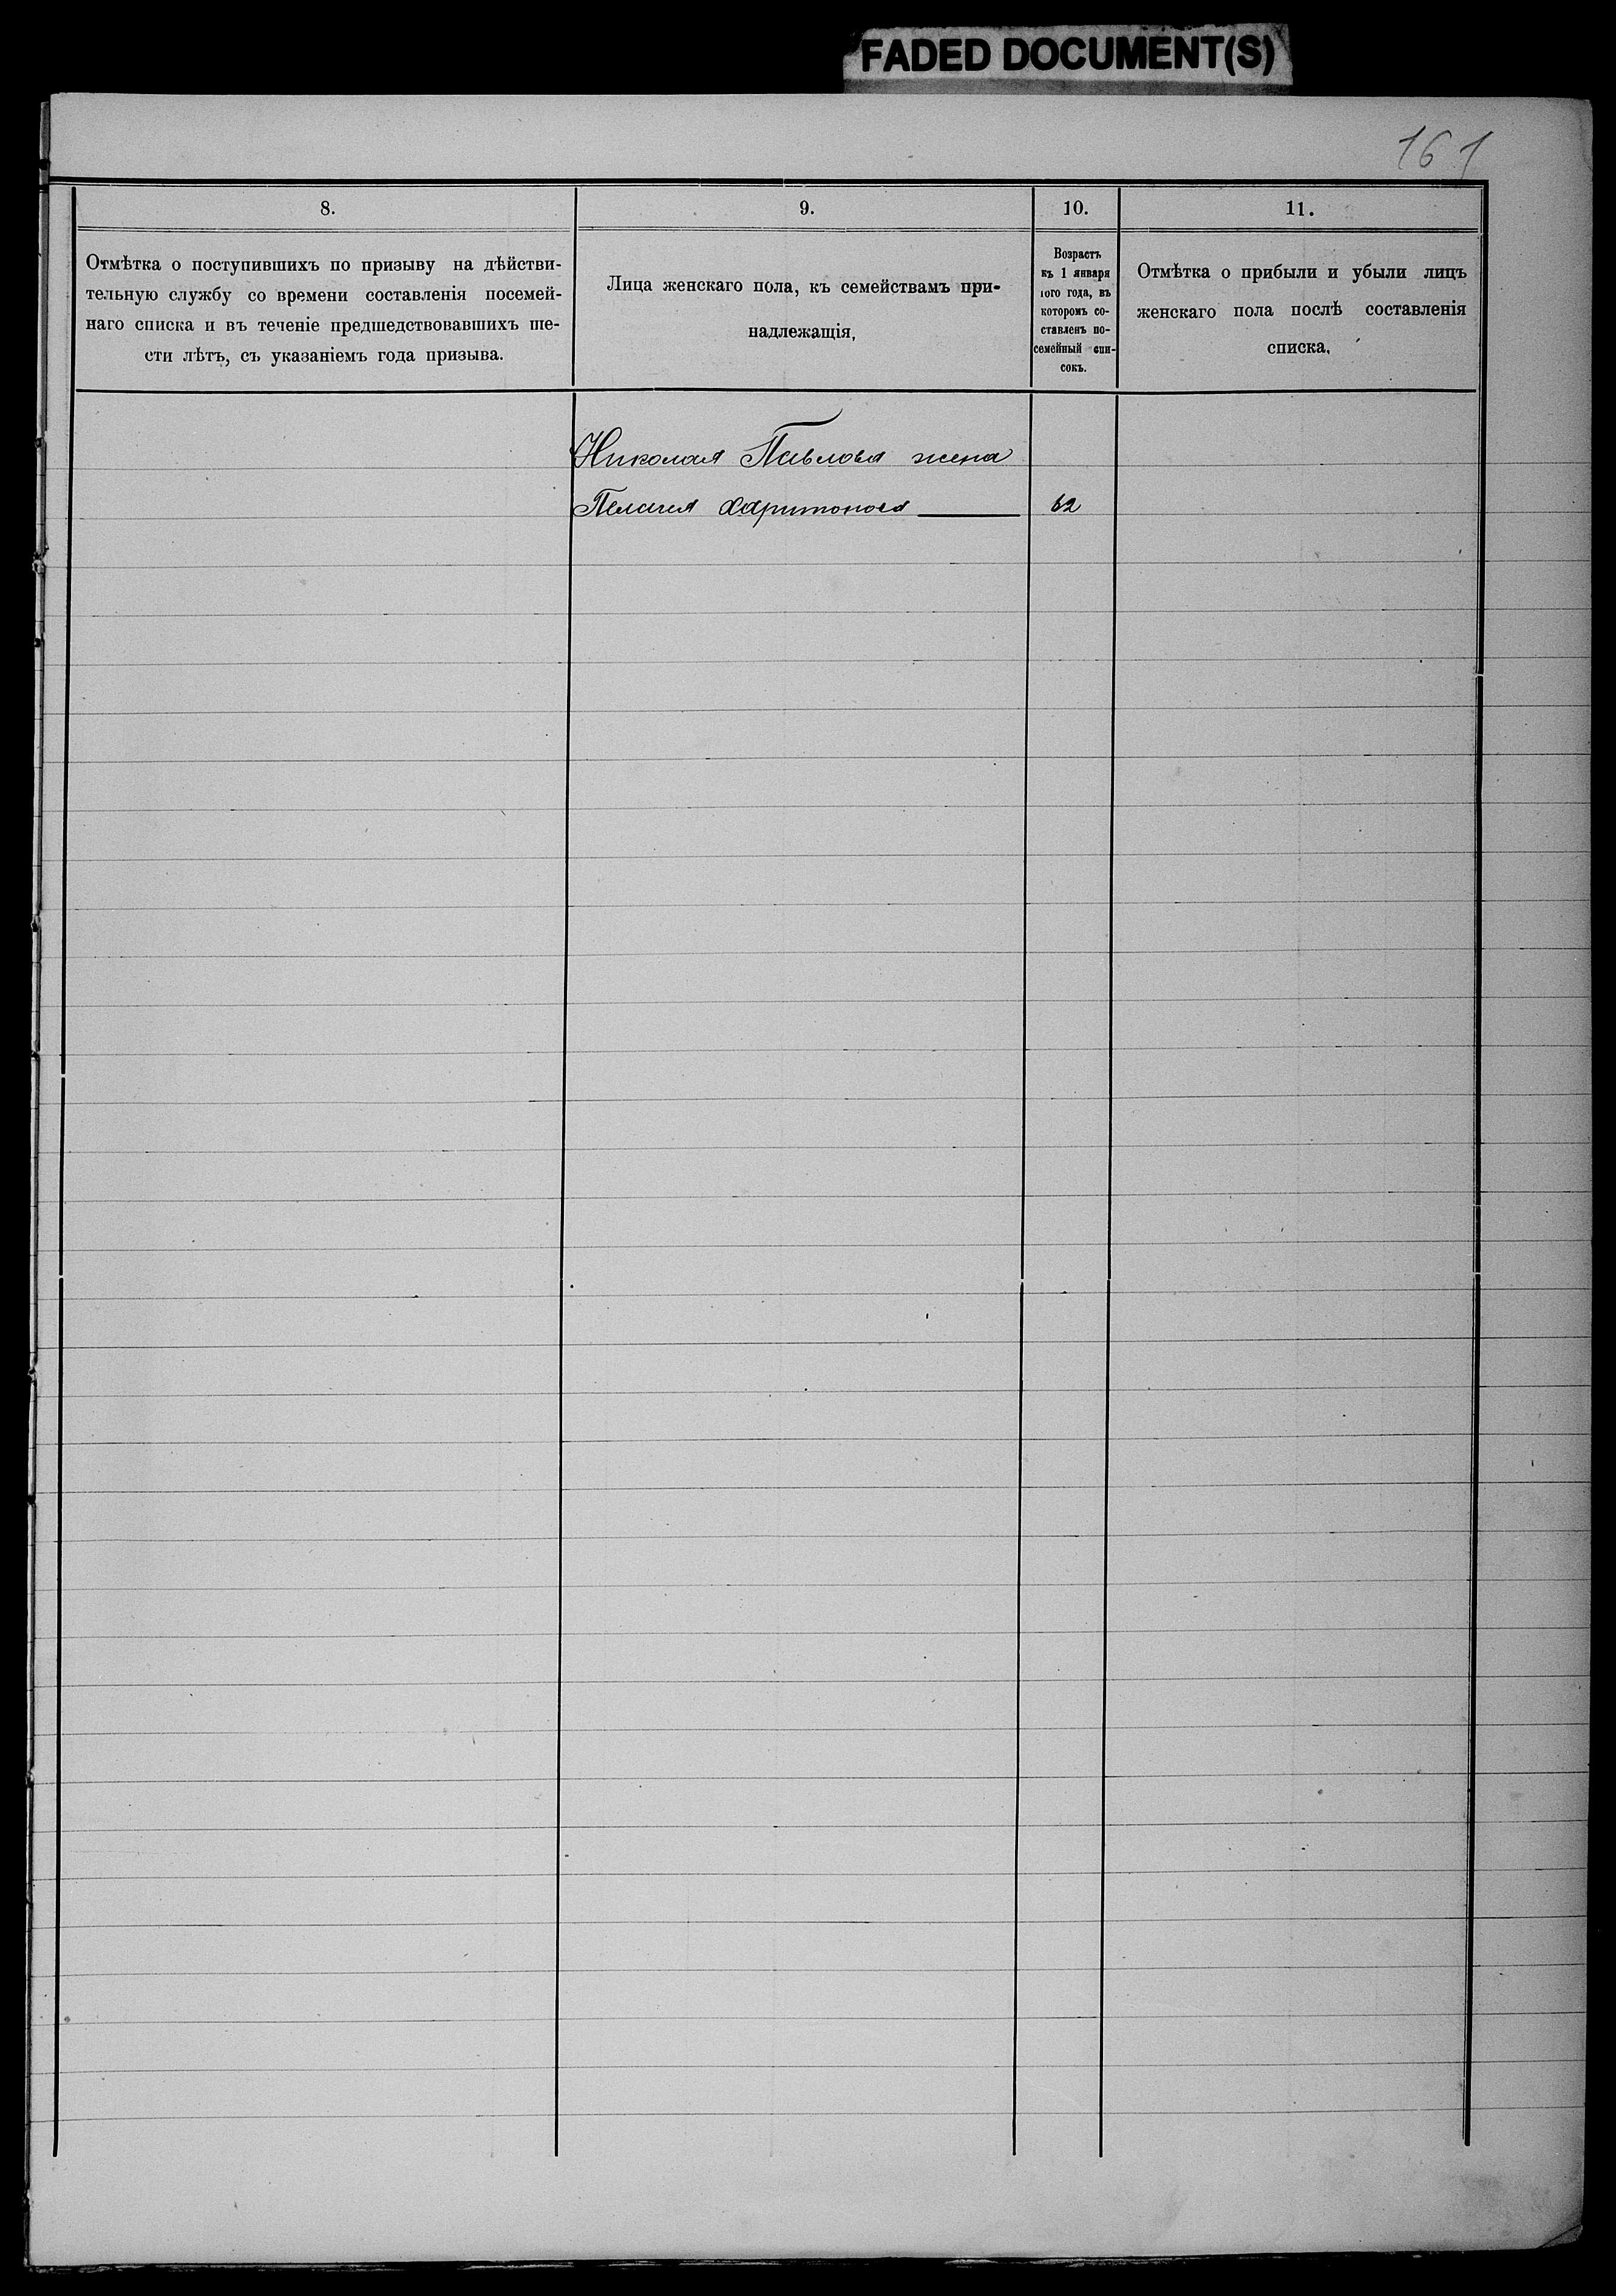 FADED DOCUMENT(S)
161
8.
9.
10.
11.
Отмѣтка о поступившихъ по призыву на дѣйстви-
тельную службу со времени составленія посемей-
наго списка и въ теченіе предшедствовавшихъ ше-
сти лѣтъ, съ указаніемъ года призыва.
Лица женскаго пола, къ семействамъ при-
надлежащія,
Возрастъ
къ 1 января
того года, въ
которомъ со-
ставленъ по-
семейный спи-
сокъ.
Отмѣтка о прибыли и убыли лицъ
женскаго пола послѣ составленія
списка.
Николая Павлова жена
Пелагея Харитонова 62